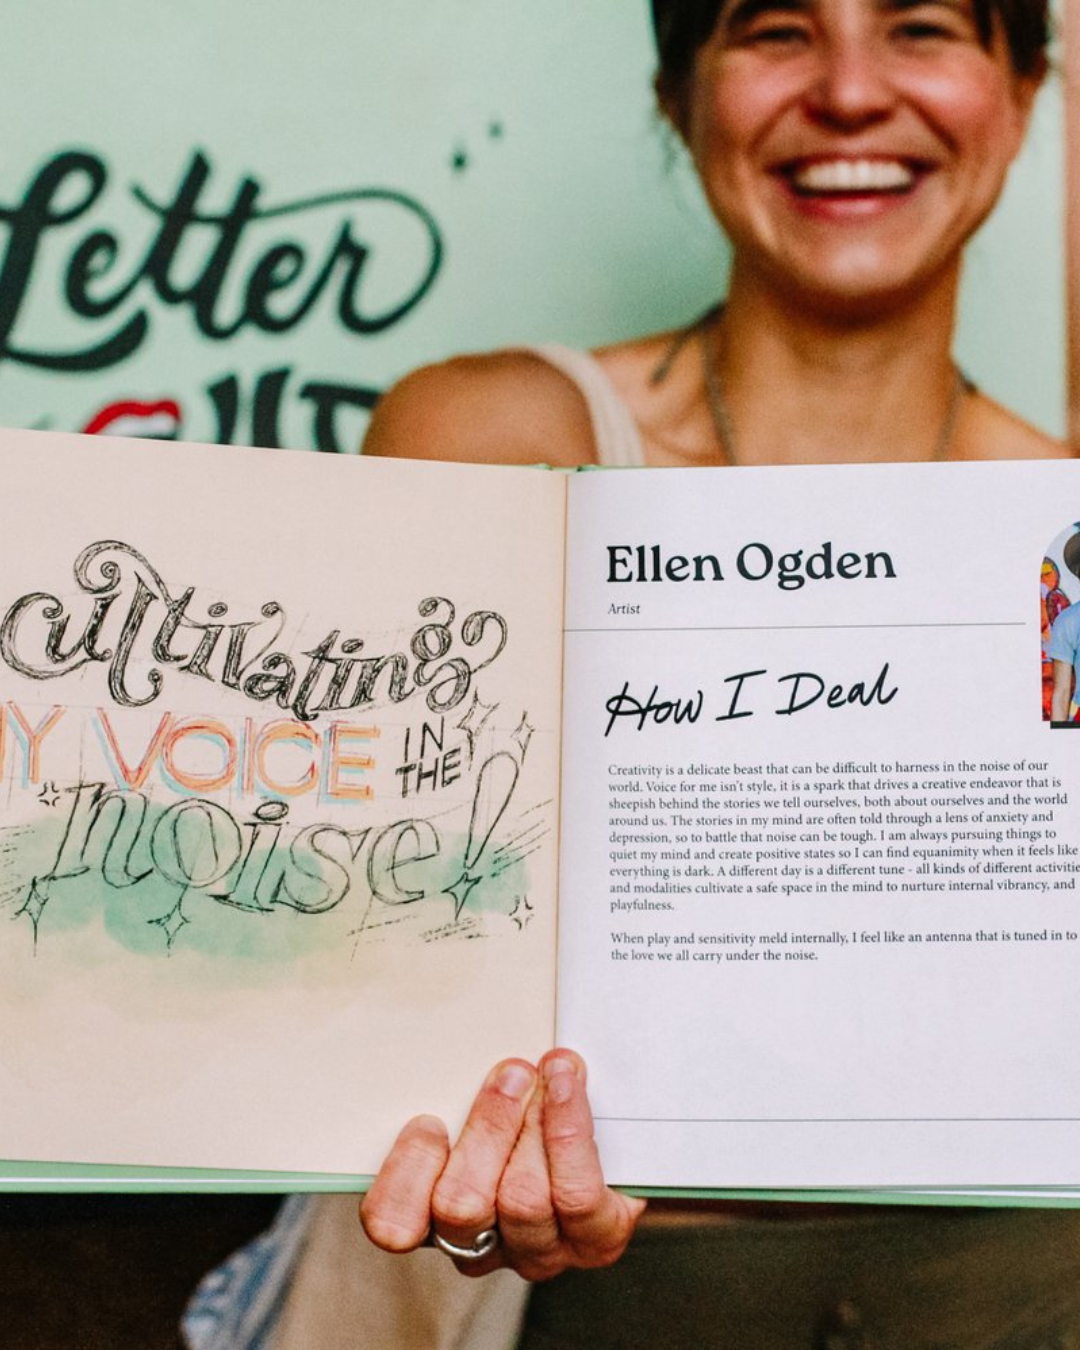 Letter
cultivating
MY VOICE IN
THE
noise!
Ellen Ogden
Artist
How I Deal
Creativity is a delicate beast that can be difficult to harness in the noise of our
world. Voice for me isn't style, it is a spark that drives a creative endeavor that is
sheepish behind the stories we tell ourselves, both about ourselves and the world
around us. The stories in my mind are often told through a lens of anxiety and
depression, so to battle that noise can be tough. I am always pursuing things to
quiet my mind and create positive states so I can find equanimity when it feels like
everything is dark. A different day is a different tune - all kinds of different activitie
and modalities cultivate a safe space in the mind to nurture internal vibrancy, and
playfulness.
When play and sensitivity meld internally, I feel like an antenna that is tuned in to
the love we all carry under the noise.